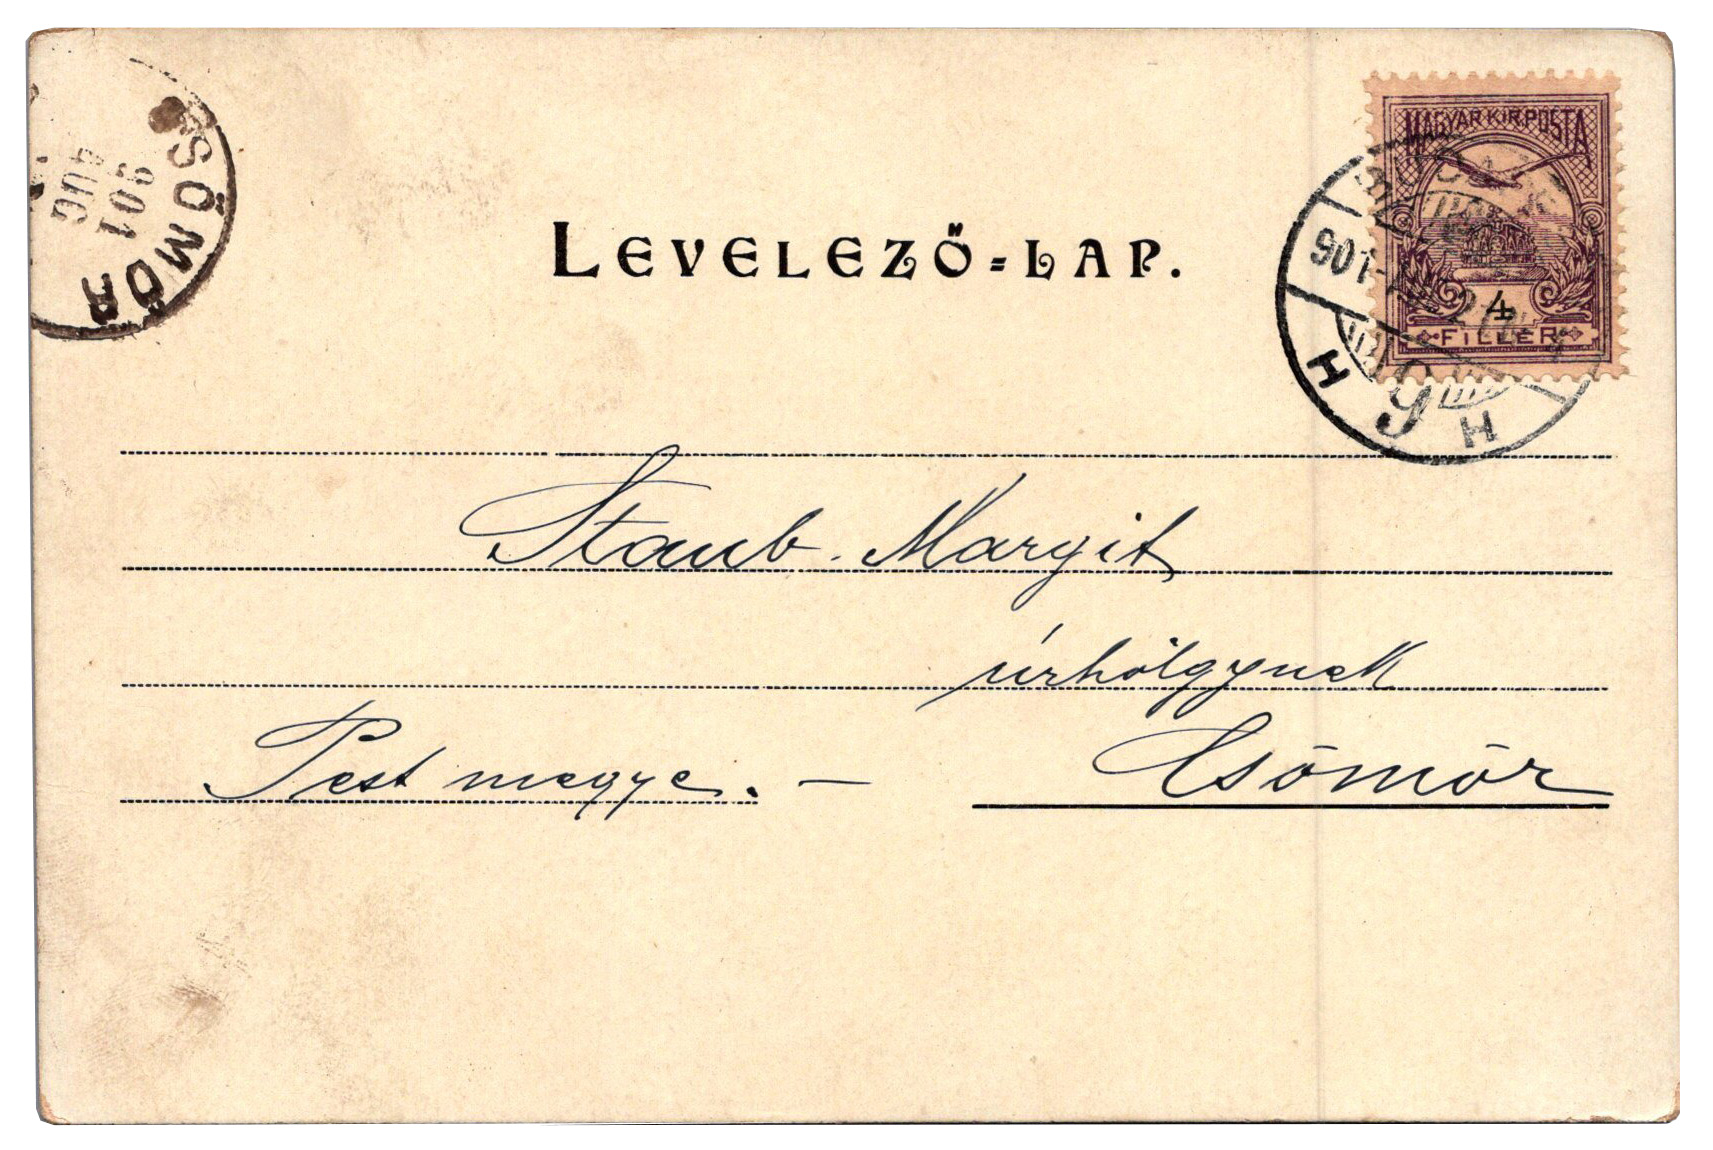 CSÖMÖR
901
AUG
MAGYAR KIR. POSTA
4
FILLÉR
901
H H
LEVELEZŐ-LAP.
Staub Margit
úrhölgynek
Pest megye. — Csömör